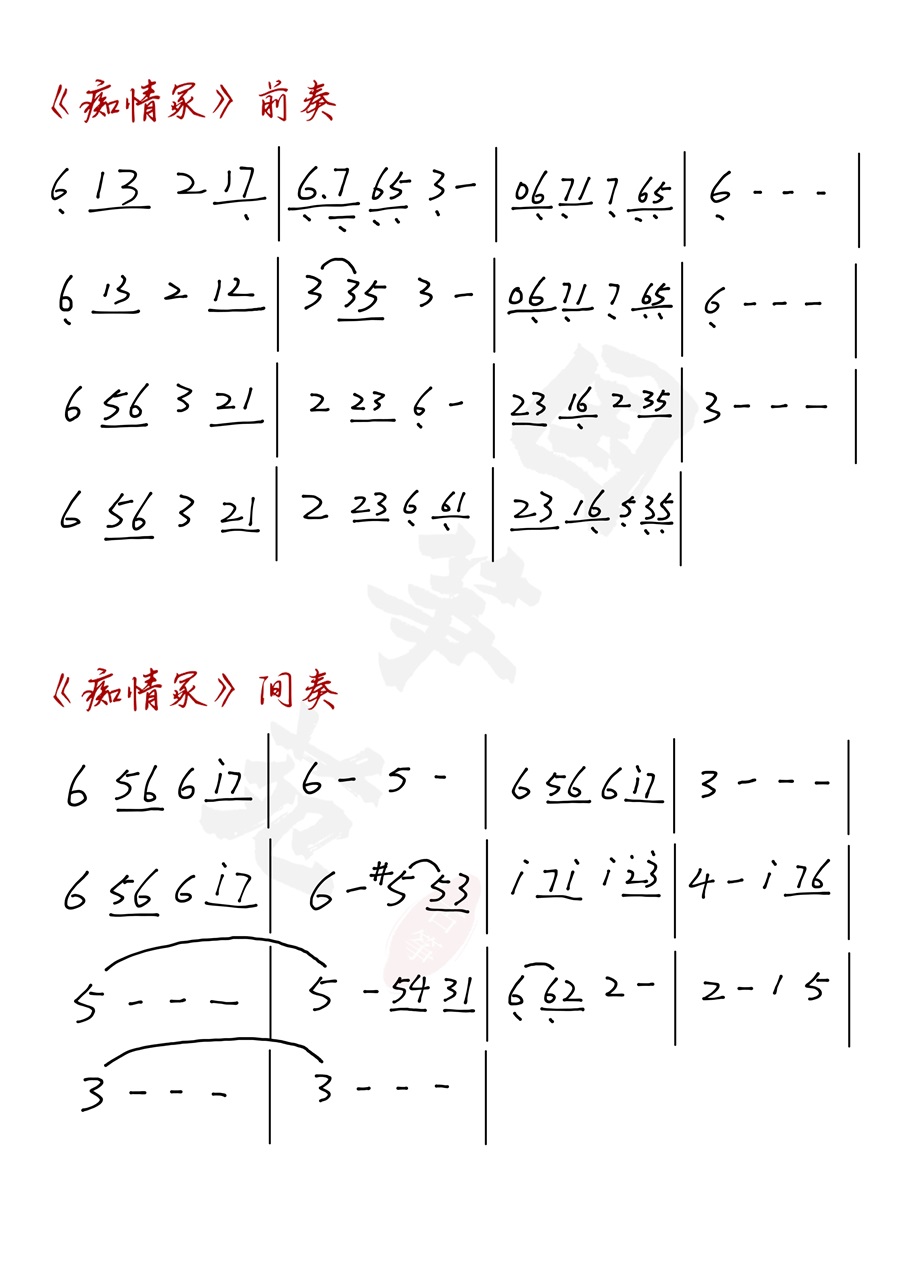 《痴情冢》前奏
6̣ 1 3 2 1 7̣ | 6̣. 7̣ 6̣ 5̣ 3̣ - | 0 6̣ 7̣ 1 7̣ 6̣ 5̣ | 6̣ - - - |
6̣ 1 3 2 1 2 | 3 3 5 3 - | 0 6̣ 7̣ 1 7̣ 6̣ 5̣ | 6̣ - - - |
6 5 6 3 2 1 | 2 2 3 6̣ - | 2 3 1 6̣ 2 3 5 | 3 - - - |
6 5 6 3 2 1 | 2 2 3 6̣ 6̣ 1 | 2 3 1 6̣ 5̣ 3̣ 5̣ |
《痴情冢》间奏
6 5 6 6 1̇ 7 | 6 - 5 - | 6 5 6 6 1̇ 7 | 3 - - - |
6 5 6 6 1̇ 7 | 6 - #5 5 3 | 1̇ 7 1̇ 1̇ 2̇ 3̇ | 4 - 1̇ 7 6 |
5 - - - | 5 - 5 4 3 1 | 6̣ 6̣ 2 2 - | 2 - 1 5 |
3 - - - | 3 - - - |
范筝国